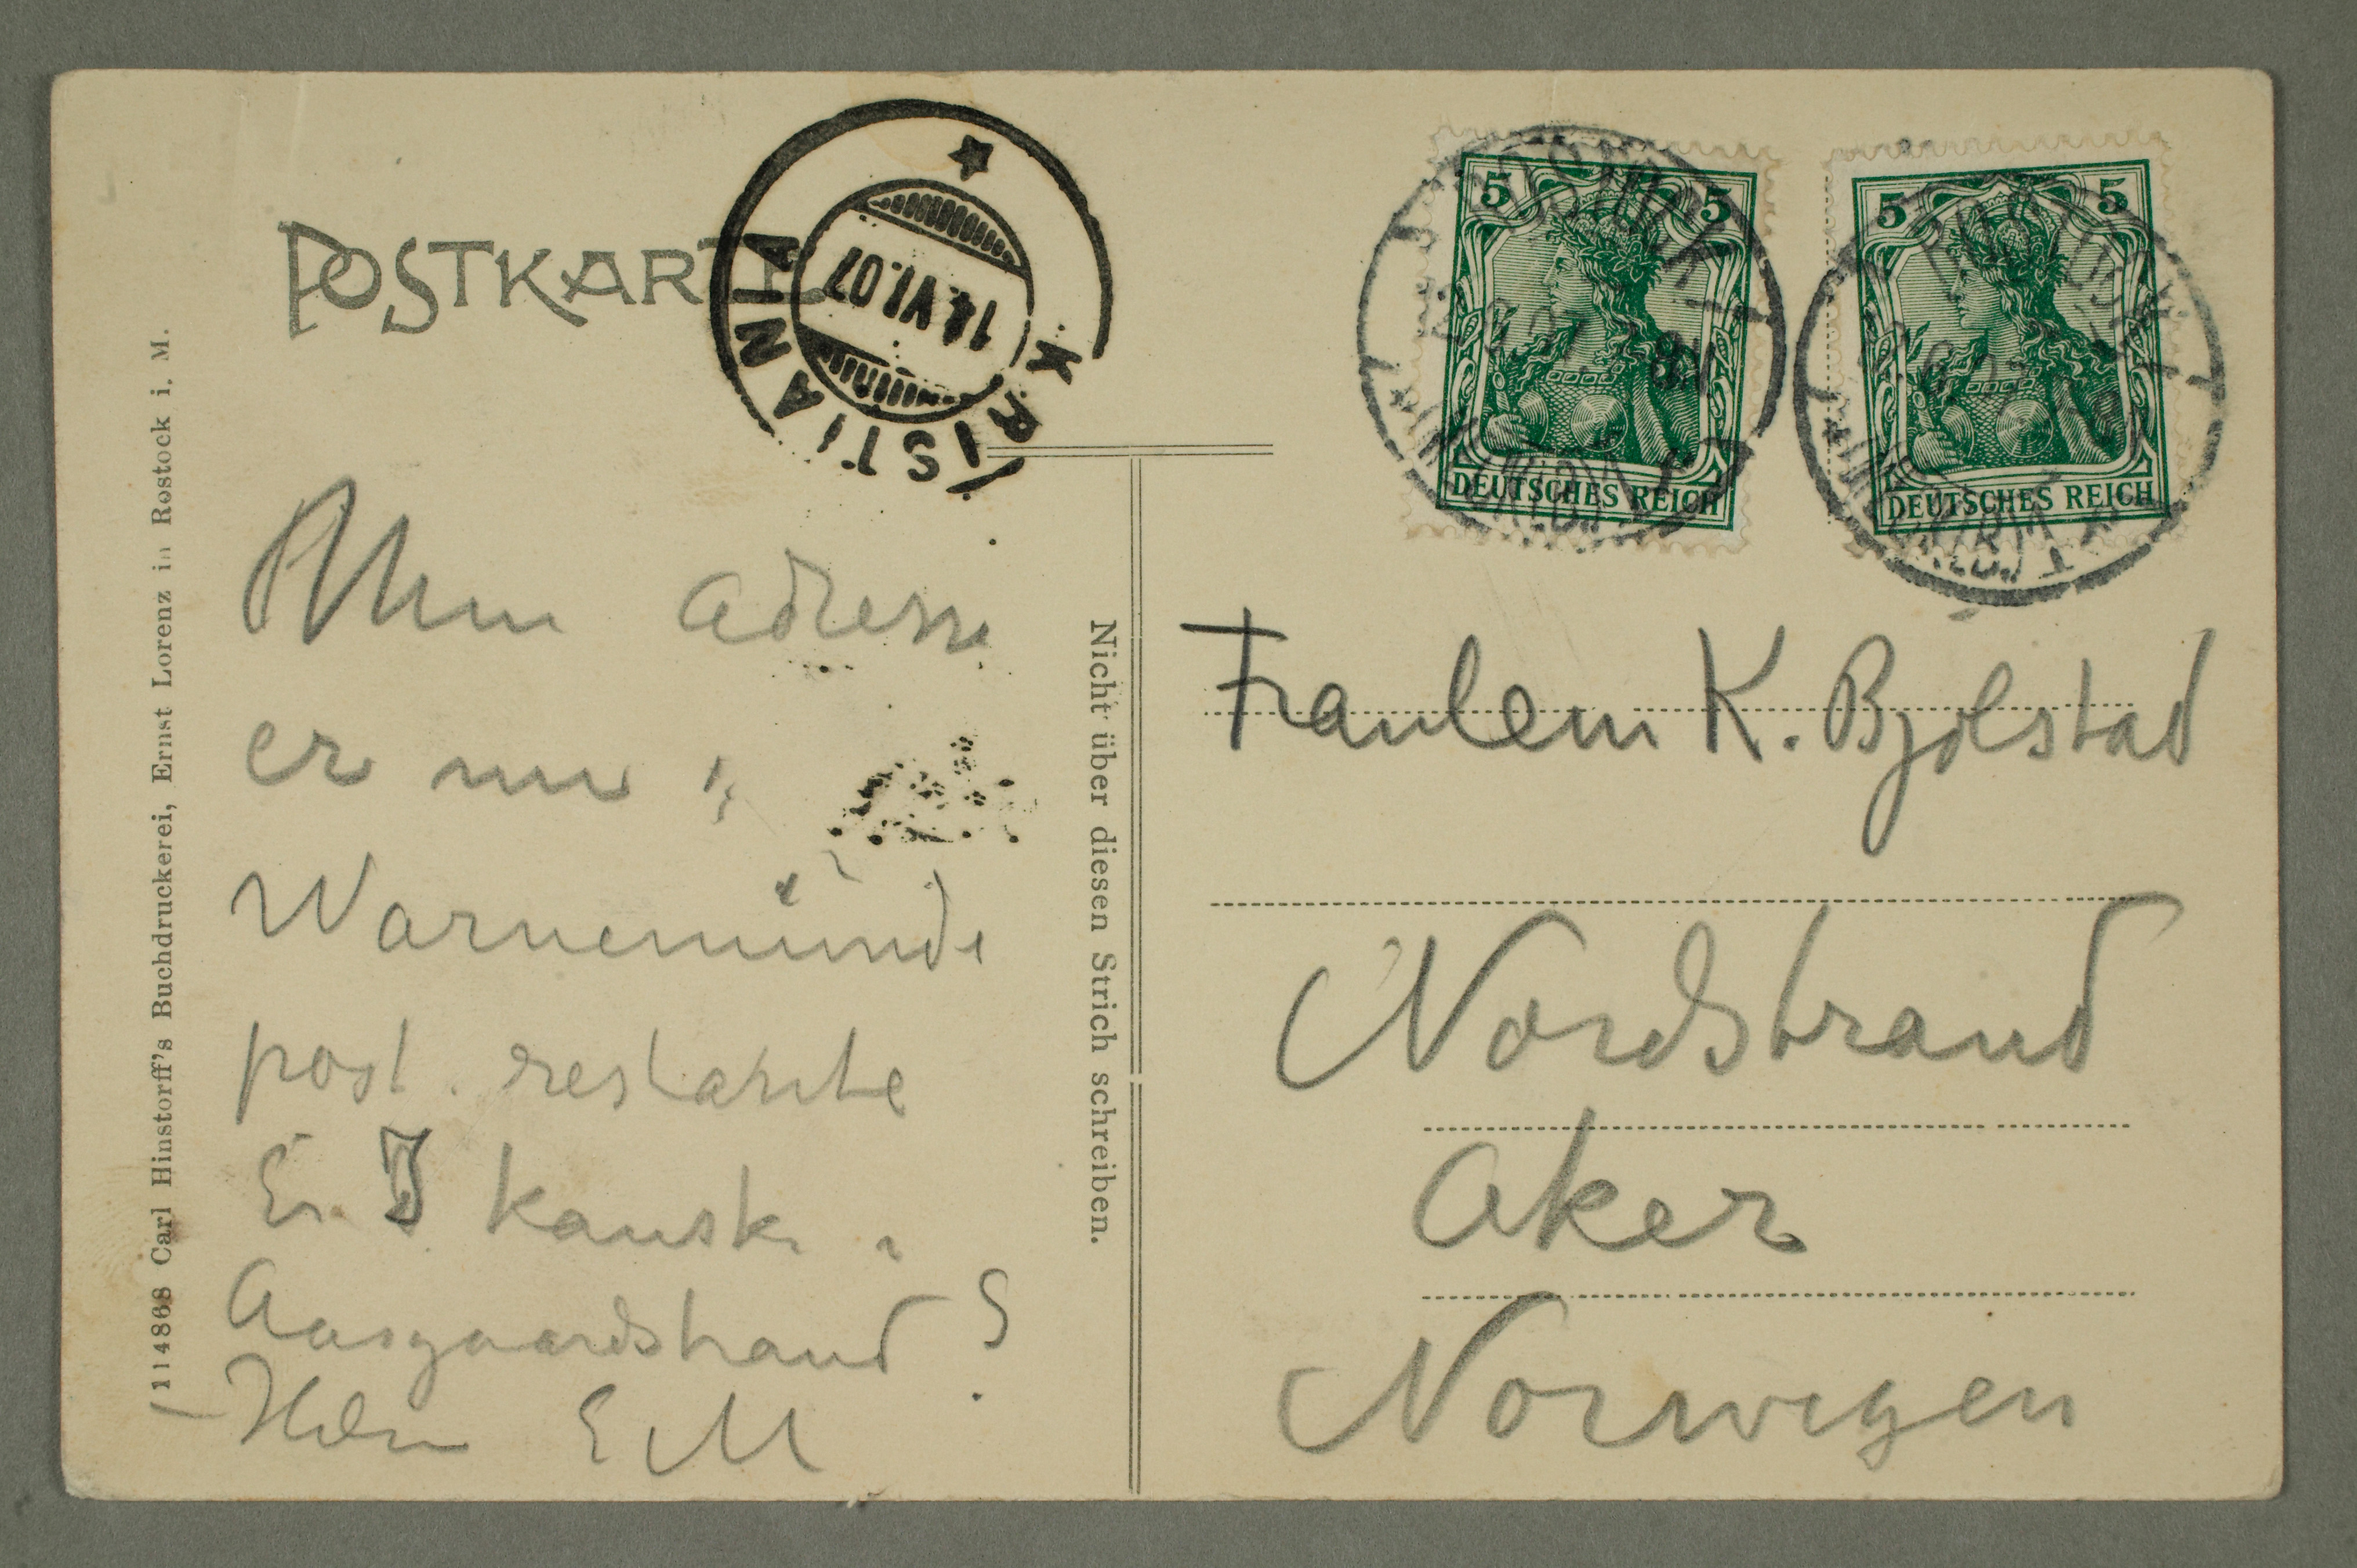 POSTKARTE
KRISTIANIA
14.VI.07
5 5
DEUTSCHES REICH
5 5
DEUTSCHES REICH
Min adresse
er nu :
Warnemünde
post. restante
Er I kanske i
Aasgaardstrand ?
Hilsen E M
Nicht über diesen Strich schreiben.
Fraulein K. Bjølstad
Nordstrand
Aker
Norwegen
114868 Carl Hinstorff's Buchdruckerei, Ernst Lorenz in Rostock i. M.